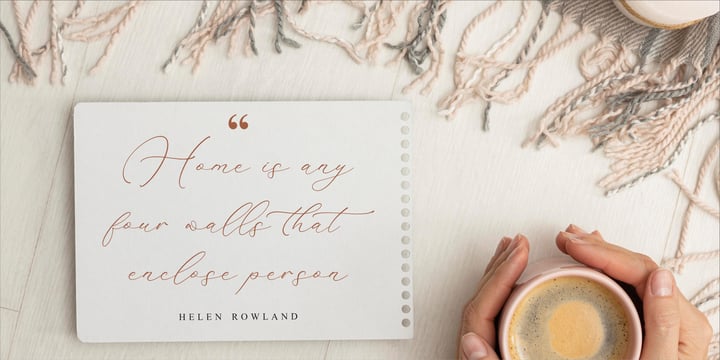 “
Home is any
four walls that
enclose person
HELEN ROWLAND